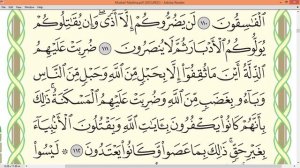 ٱلْفَٰسِقُونَ ١١٠ لَن يَضُرُّوكُمْ إِلَّآ أَذًى وَإِن يُقَٰتِلُوكُمْ
يُوَلُّوكُمُ ٱلْأَدْبَارَ ثُمَّ لَا يُنصَرُونَ ١١١ ضُرِبَتْ عَلَيْهِمُ
ٱلذِّلَّةُ أَيْنَ مَا ثُقِفُوٓا۟ إِلَّا بِحَبْلٍ مِّنَ ٱللَّهِ وَحَبْلٍ مِّنَ ٱلنَّاسِ
وَبَآءُو بِغَضَبٍ مِّنَ ٱللَّهِ وَضُرِبَتْ عَلَيْهِمُ ٱلْمَسْكَنَةُ ذَٰلِكَ
بِأَنَّهُمْ كَانُوا۟ يَكْفُرُونَ بِـَٔايَٰتِ ٱللَّهِ وَيَقْتُلُونَ ٱلْأَنۢبِيَآءَ
بِغَيْرِ حَقٍّ ذَٰلِكَ بِمَا عَصَوا۟ وَّكَانُوا۟ يَعْتَدُونَ ١١٢ لَيْسُوا۟